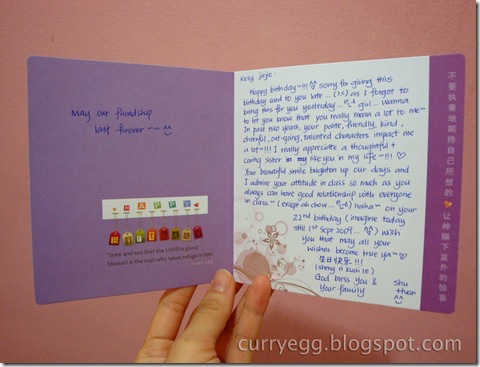 may our friendship
last forever ~~ ^^
HAPPY
Birthday
Taste and see that the LORD is good;
blessed is the man who takes refuge in him.
Kelly jieje :
Happy birthday~!!! ^^ sorry for giving this
birthday card to you late... (>.<) as I forgot to
bring this for you yesterday... girl... wanna
to let you know that you really mean a lot to me~
In past two years, your polite, friendly, kind,
cheerful, out-going, talented characters impact me
a lot~!!! I really appreciate a thoughtful +
caring sister in my like you in my life ~!!! ♡
Your beautiful smile brighten up our days and
I admire your attitude in class so much as you
always can have good relationship with everyone
in class~ (except ah chow... ) haha~ on your
22nd birthday (imagine today
still 1st Sept 2009... ^^) wish
you that may all your
wishes become true ya~ ♡
生日快乐 !!!
(sheng ri kuai le)
God bless you &
your family
Shu
Huan
^^
不要执着地期待自己所想的
让神赐下意外的惊喜
curryegg.blogspot.com